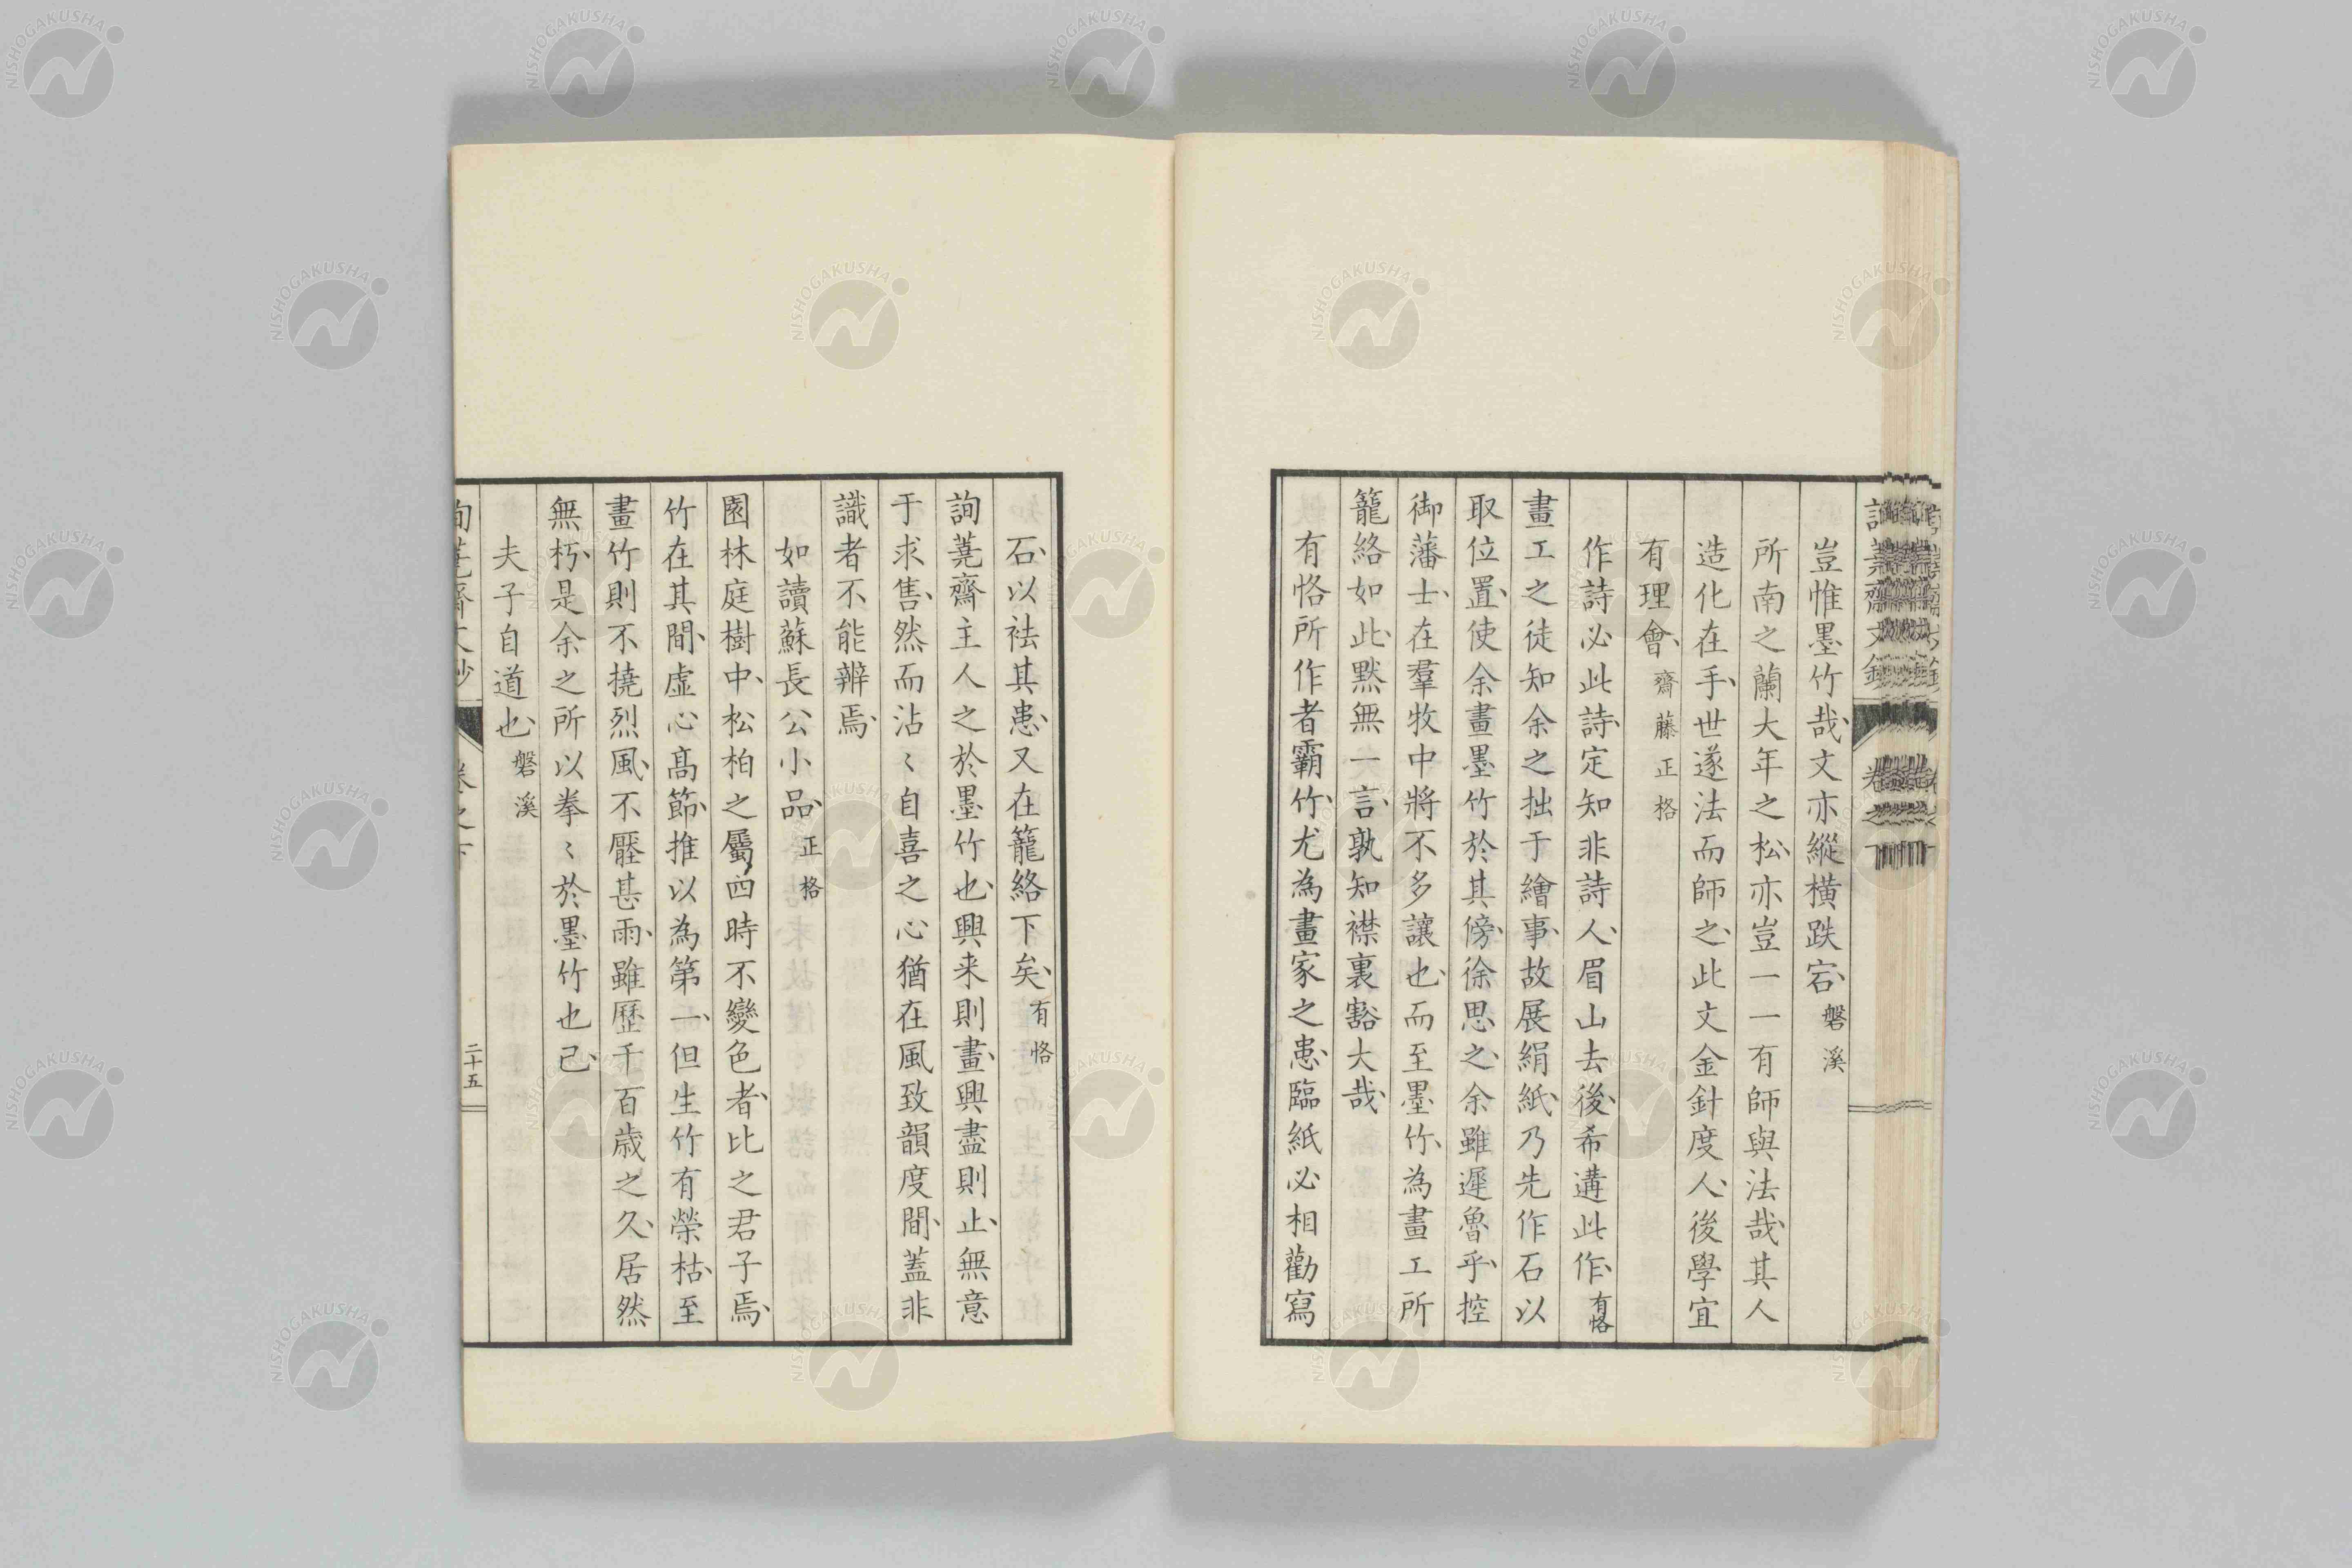 豈惟墨竹哉、文亦縱橫跌宕、磐溪
所南之蘭大年之松、亦豈一一有師與法哉、其人
造化在手、世遂法而師之、此文金針度人、後學宜
有理會、齋藤正格
作詩必此詩、定知非詩人、眉山去後、希遘此作、有恪
畫工之徒知余之拙于繪事、故展絹紙、乃先作石以
取位置、使余畫墨竹於其傍、徐思之、余雖遲魯乎、控
御藩士、在羣牧中將不多讓也、而至墨竹、為畫工所
籠絡如此、默無一言、孰知襟裏豁大哉、
有恪所作者霸竹、尤為畫家之患、臨紙必相勸寫
石、以祛其患、又在籠絡下矣、有恪
詢蕘齋主人之於墨竹也、興来則畫、興盡則止、無意
于求售、然而沾〻自喜之心猶在風致韻度間、蓋非
識者不能辨焉、
如讀蘇長公小品、正格
園林庭樹中、松柏之屬、四時不變色者、比之君子焉、
竹在其間、虛心高節、推以為第一、但生竹有榮枯、至
畫竹則不撓烈風、不壓甚雨、雖歷千百歲之久、居然
無朽、是余之所以拳〻於墨竹也已、
夫子自道也、磐溪
二十五
NISHOGAKUSHA